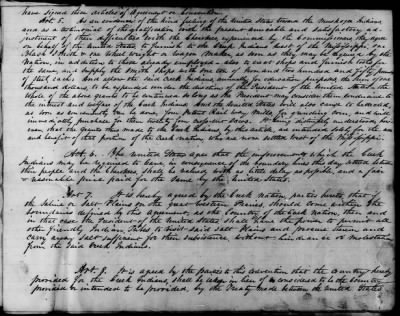 have signed these articles of Agreement or Convention.
Art. 5. As an evidence of the kind feeling of the United States towards the Muskogee Indians
and as a testimonial of the gratification with the present amicable and satisfactory ad-
justment of their difficulties with the Cherokees experienced by the Commissioners they agree
on behalf of the United States to furnish to the Creek Indians west of the Mississippi one
Black Smith & one Wheel wright or wagon Maker as soon as they may be required by the
Nation, in addition to those already employed, also to erect shops and furnish tools for
the same, and supply the Smith shops with one ton of Iron and two hundred and fifty pounds
of Steel each; And allow the said Creek Indians annually for education purposes the sum of three
thousand dollars to be expended under the direction of the President of the United States, the
whole of the above grants to be continued so long as the President may consider them conducive to
the interest and welfare of the Creek Indians. And the United States will also cause to be erected,
as soon as conveniently can be done, four patent rail way Mills, for grinding corn, and will
immediately purchase for them twenty four cross cut saws, It being distinctly understood, how-
ever that the grants thus made to the Creek Indians, by this article, are intended solely for the use
and benefit of that portion of the Creek nation, who are now settled west of the Mississippi.
Art. 6. The United States agree that the improvements which the Creek
Indians may be required to leave, in consequence of the boundary line this day settled between
their people, and the Cherokees, shall be valued with as little delay as possible, and a fair
& reasonable price paid for the same by the United States.
Art. 7. It is hereby agreed by the Creek Nation, parties hereto, that if
the Saline or Salt Plains on the great Western Prairies, should come within the
boundaries defined by this agreement, as the Country of the Creek Nation, then and
in that case the President of the United States, shall have the power to permit all
other friendly Indian Tribes to visit said Salt Plains and procure thereon and
carry away Salt sufficient for their subsistence, without hindrance or molestation
from the said Creek Indians.
Art. 8. It is agreed by the parties to this convention that the Country hereby
provided for the Creek Indians, shall be taken in lieu of & considered to be the Country
provided or intended to be provided, by the Treaty made between the United States